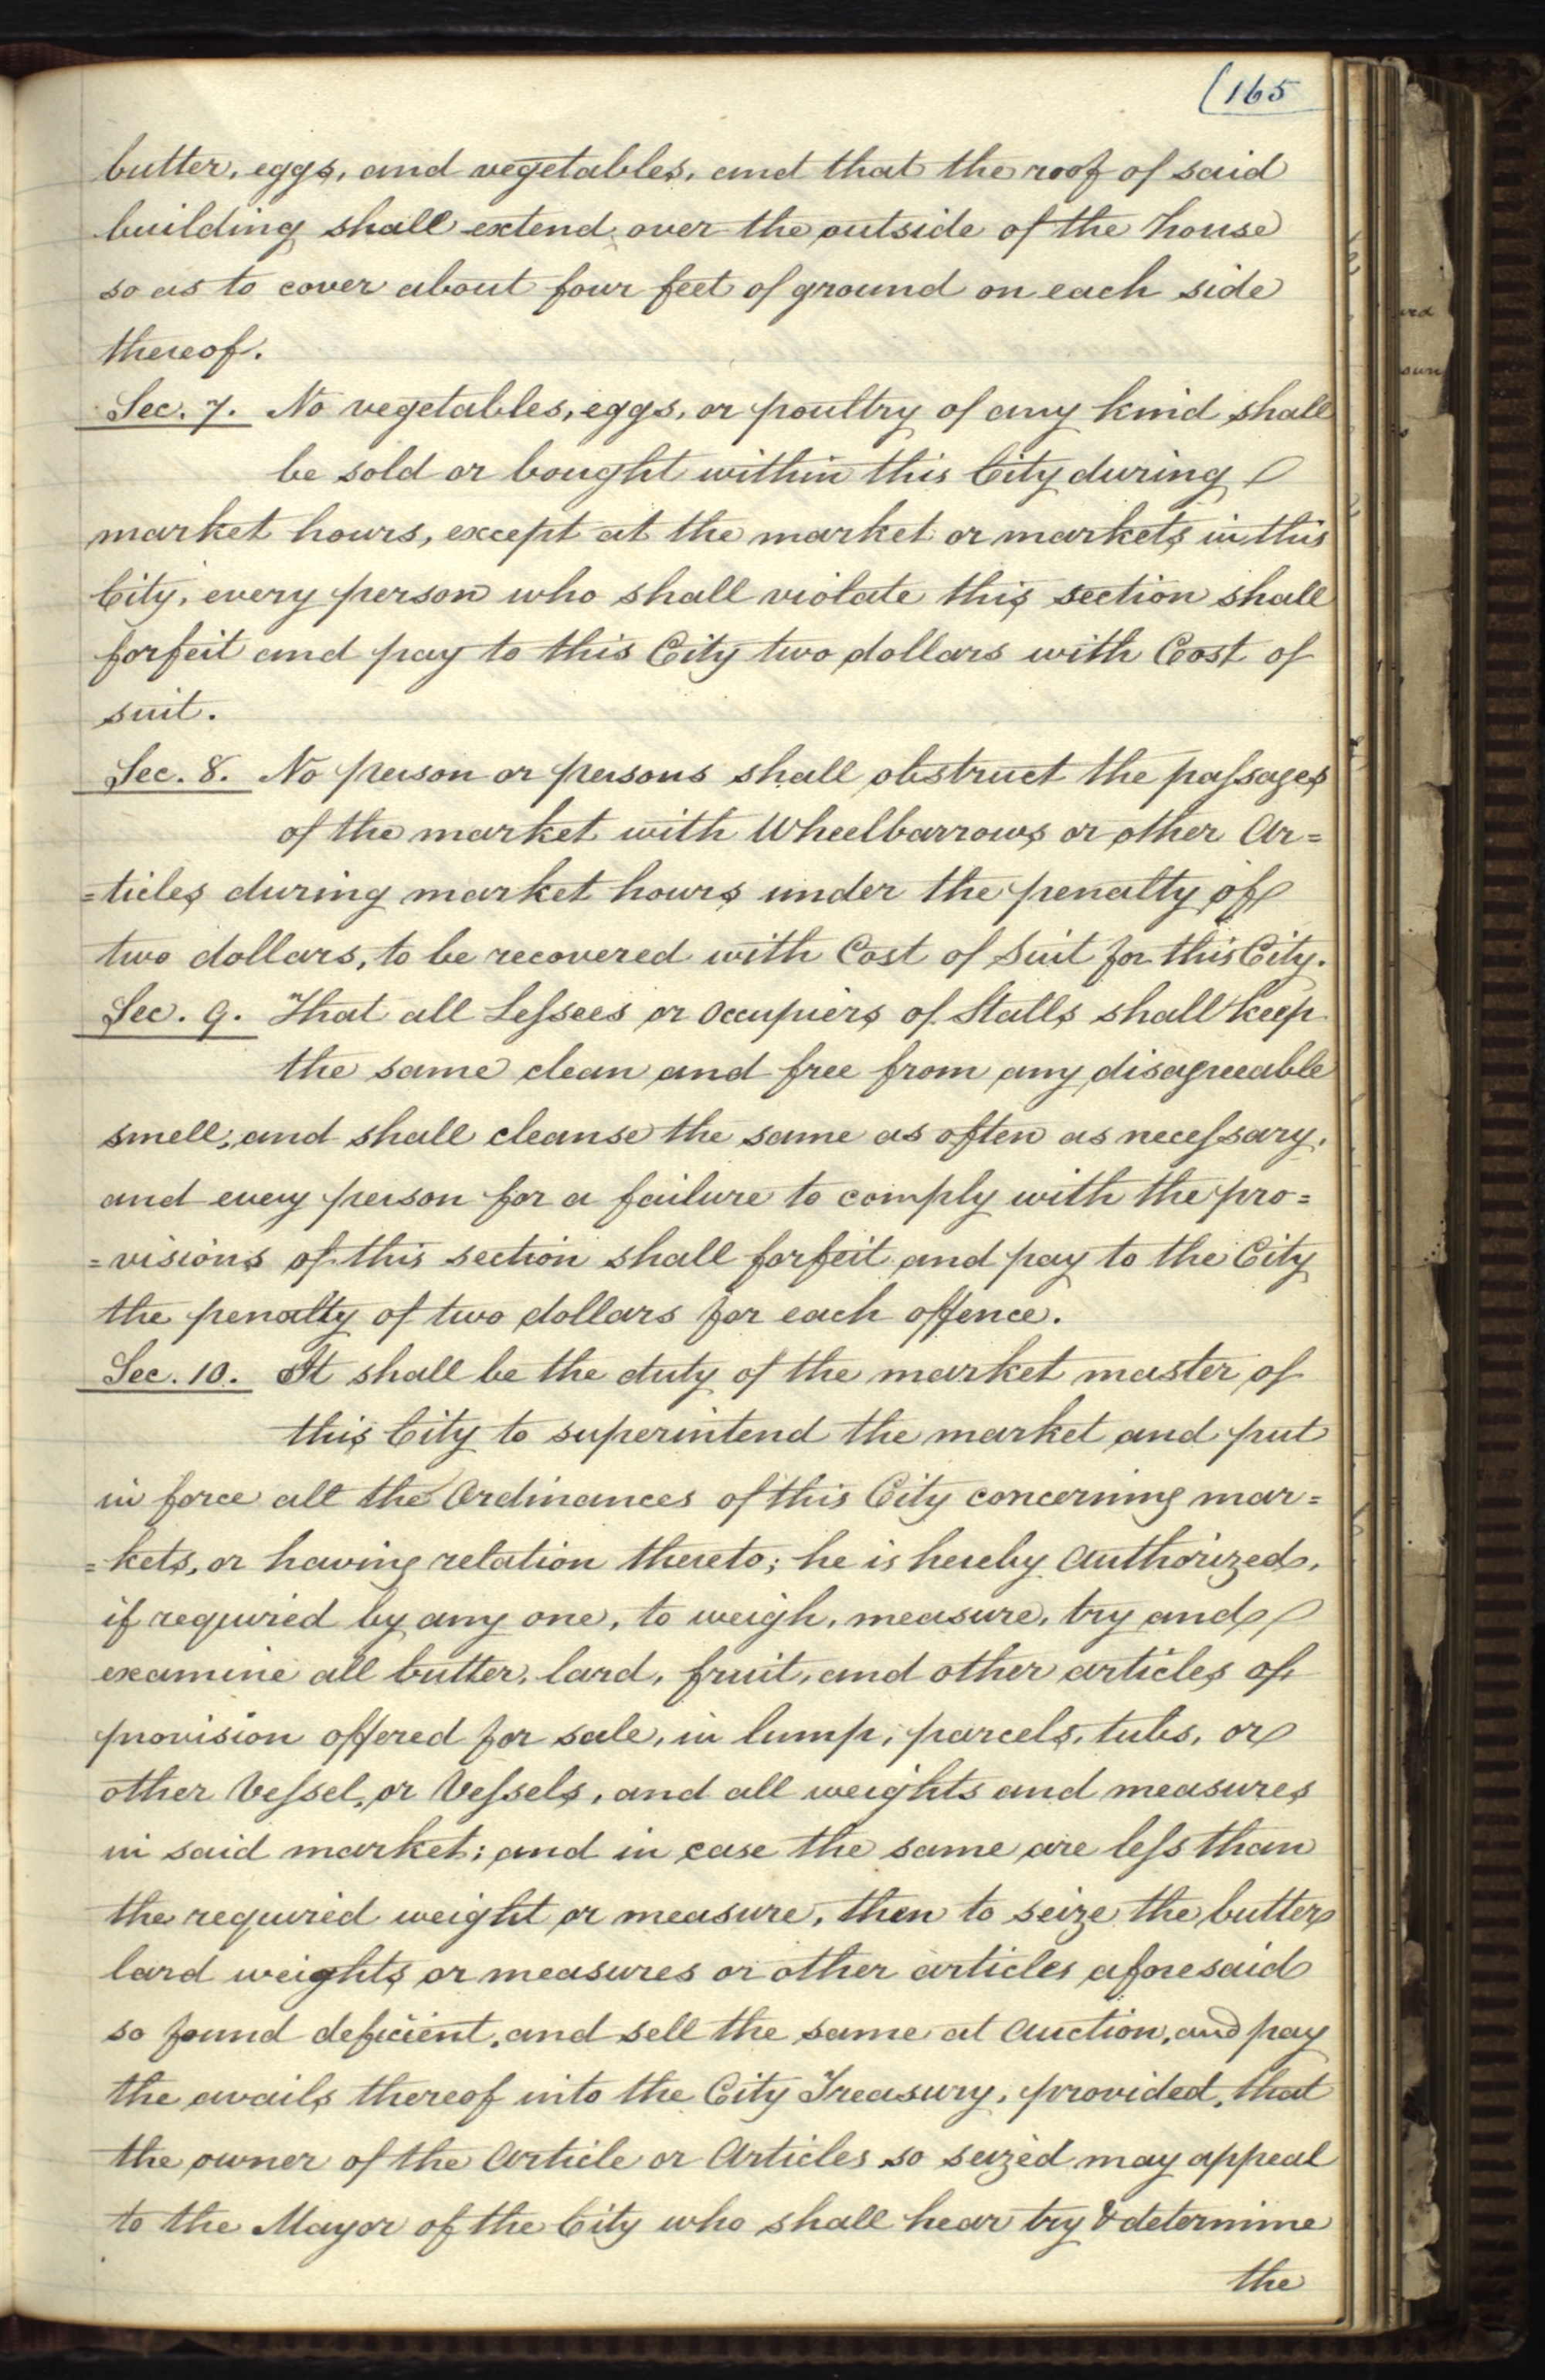 165
butter, eggs, and vegetables, and that the roof of said
building shall extend over the outside of the house
so as to cover about four feet of ground on each side
thereof.
Sec. 7. No vegetables, eggs, or poultry of any kind shall
be sold or bought within this City during
market hours, except at the market or markets in this
City, every person who shall violate this section shall
forfeit and pay to this City two dollars with Cost of
suit.
Sec. 8. No person or persons shall obstruct the paſsages
of the market with Wheelbarrows or other Ar=
=ticles during market hours under the penalty of
two dollars, to be recovered with Cost of Suit for this City.
Sec. 9. That all Leſsees or Occupiers of Stalls shall keep
the same clean and free from any disagreeable
smell, and shall cleanse the same as often as neceſsary,
and every person for a failure to comply with the pro=
=visions of this section shall forfeit and pay to the City
the penalty of two dollars for each offence.
Sec. 10. It shall be the duty of the market master of
this City to superintend the market and put
in force all the Ordinances of this City concerning mar=
=kets, or having relation thereto; he is hereby Authorized,
if required by any one, to weigh, measure, try and
examine all butter, lard, fruit, and other articles of
provision offered for sale, in lump, parcels, tubs, or
other Veſsel, or Veſsels, and all weights and measures
in said market; and in case the same are leſs than
the required weight or measure, then to seize the butter
lard weights or measures or other articles aforesaid
so found deficient, and sell the same at Auction, and pay
the avails thereof into the City Treasury, provided, that
the owner of the Article or Articles so seized may appeal
to the Mayor of the City who shall hear try & determine
the